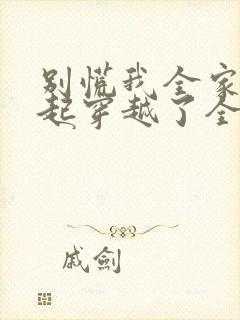 别慌我全家
起穿越了全
戚劍